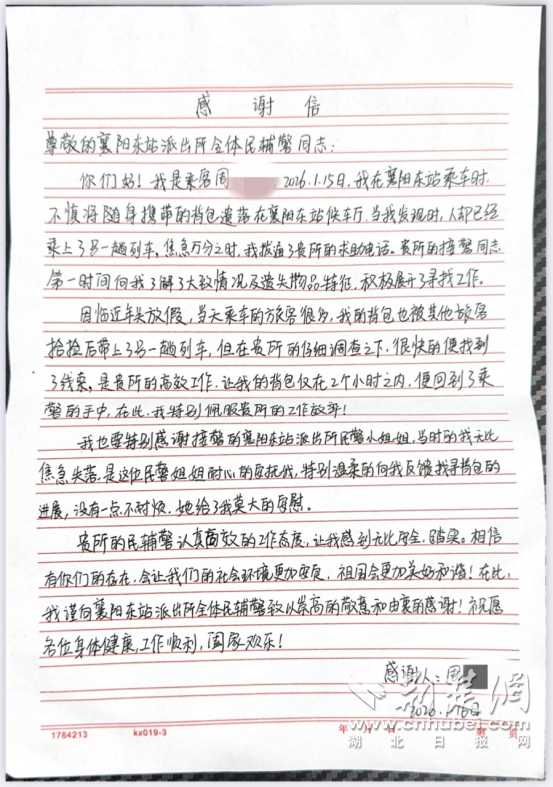 感谢信
尊敬的襄阳东站派出所全体民辅警同志:
你们好!我是乘客周 2026.1.15日,我在襄阳东站乘车时,
不慎将随身携带的背包遗落在襄阳东站候车厅,当我发现时,人却已经
乘上了另一趟列车,焦急万分之时,我拨通了贵所的求助电话。贵所的接警同志
第一时间向我了解了大致情况及遗失物品特征,积极展开了寻找工作。
因临近年关放假,当天乘车的旅客很多,我的背包也被其他旅客
拾捡后带上了另一趟列车,但在贵所的仔细调查之下,很快的便找到
了线索,是贵所的高效工作,让我的背包仅在2个小时之内,便回到了乘
警的手中,在此,我特别佩服贵所的工作效率!
我也要特别感谢接警的襄阳东站派出所民警小姐姐,当时的我无比
焦急失落,是这位民警姐姐耐心的安抚我,特别温柔的向我反馈找寻背包的
进展,没有一点不耐烦,她给了我莫大的安慰。
贵所的民辅警认真高效的工作态度,让我感到无比安全、踏实。相信
有你们的存在,会让我们的社会环境更加安定,祖国会更加美好和谐!在此,
我谨向襄阳东站派出所全体民辅警致以崇高的敬意和由衷的感谢!祝愿
各位身体健康,工作顺利,阖家欢乐!
感谢人:周
2026.1.16日
1784213 kx019-3 年 月 日 第 页
荆楚网
www.cnhubei.com
湖北日报网